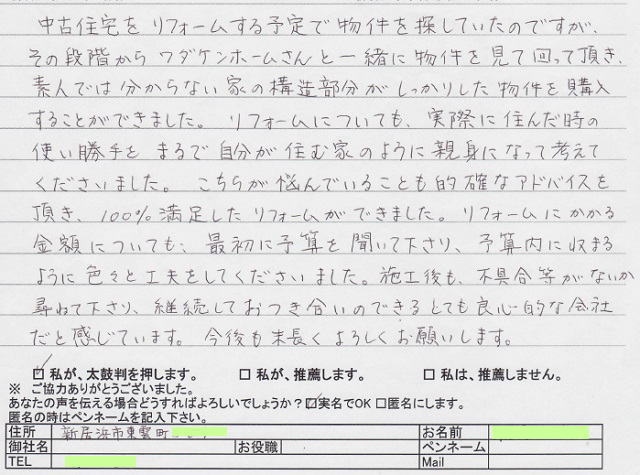 中古住宅を リフォームする予定で物件を探していたのですが、
その段階から ワダケンホームさんと一緒に物件を見て回って頂き、
素人では分からない家の構造部分がしっかりした物件を購入
することができました。 リフォームについても、実際に住んだ時の
使い勝手を まるで自分が住む家のように親身になって考えて
くださいました。 こちらが悩んでいることも的確なアドバイスを
頂き、100%満足したリフォームができました。リフォームにかかる
金額についても、最初に予算を聞いて下さり、予算内に収まる
ように色々と工夫をしてくださいました。施工後も、不具合等がないか
尋ねて下さり、継続しておつき合いのできるとても良心的な会社
だと感じています。今後も末長くよろしくお願いします。
☑ 私が、太鼓判を押します。 □ 私が、推薦します。 □ 私は、推薦しません。
※ ご協力ありがとうございました。
あなたの声を伝える場合どうすればよろしいでしょうか?☑実名でOK □匿名にします。
匿名の時はペンネームを記入下さい。
住所 新居浜市東雲町 お名前
御社名 お役職 ペンネーム
TEL Mail